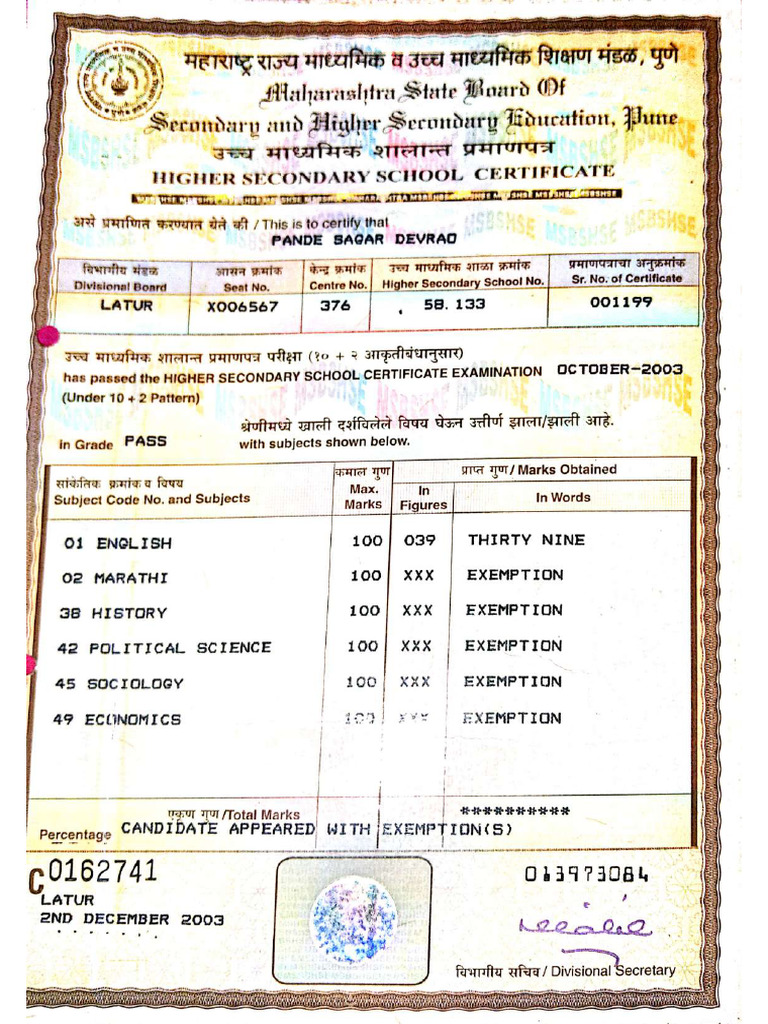 महाराष्ट्र राज्य माध्यमिक व उच्च माध्यमिक शिक्षण मंडळ, पुणे
Maharashtra State Board Of
Secondary and Higher Secondary Education, Pune
उच्च माध्यमिक शालान्त प्रमाणपत्र
HIGHER SECONDARY SCHOOL CERTIFICATE
असे प्रमाणित करण्यात येते की / This is to certify that
PANDE SAGAR DEVRAO
विभागीय मंडळ आसन क्रमांक केन्द्र क्रमांक उच्च माध्यमिक शाळा क्रमांक प्रमाणपत्राचा अनुक्रमांक
Divisional Board Seat No. Centre No. Higher Secondary School No. Sr. No. of Certificate
LATUR X006567 376 58. 133 001199
उच्च माध्यमिक शालान्त प्रमाणपत्र परीक्षा (१० + २ आकृतीबंधानुसार)
has passed the HIGHER SECONDARY SCHOOL CERTIFICATE EXAMINATION OCTOBER-2003
(Under 10 + 2 Pattern)
श्रेणीमध्ये खाली दर्शविलेले विषय घेऊन उत्तीर्ण झाला/झाली आहे.
in Grade PASS with subjects shown below.
सांकेतिक क्रमांक व विषय कमाल गुण प्राप्त गुण / Marks Obtained
Subject Code No. and Subjects Max. Marks In Figures In Words
01 ENGLISH 100 039 THIRTY NINE
02 MARATHI 100 XXX EXEMPTION
38 HISTORY 100 XXX EXEMPTION
42 POLITICAL SCIENCE 100 XXX EXEMPTION
45 SOCIOLOGY 100 XXX EXEMPTION
49 ECONOMICS 100 XXX EXEMPTION
एकूण गुण /Total Marks **********
Percentage CANDIDATE APPEARED WITH EXEMPTION(S)
C0162741 013973084
LATUR
2ND DECEMBER 2003
विभागीय सचिव / Divisional Secretary